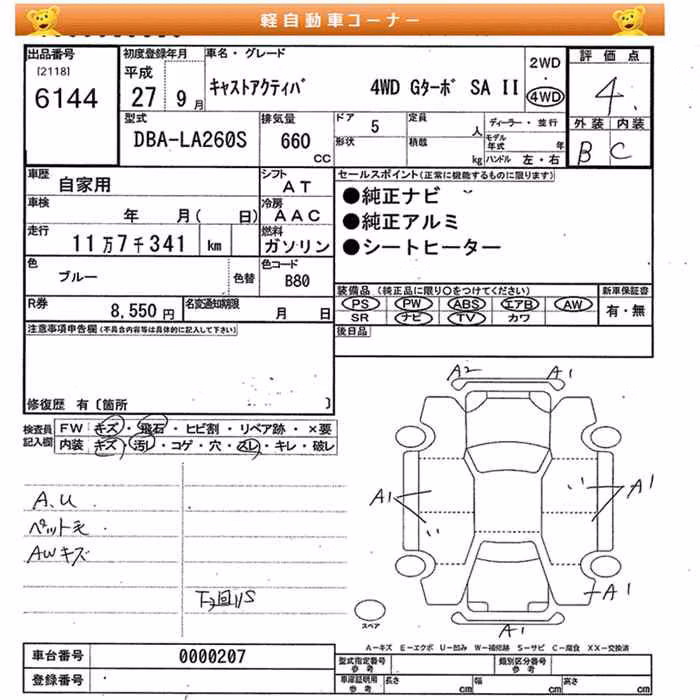 軽自動車コーナー
出品番号
[2118]
6144
初度登録年月
平成
27 9月
車名・グレード
キャストアクティバ 4WD Gターボ SA II
2WD
・
4WD
評価点
4.
外装 内装
B C
型式
DBA-LA260S
排気量
660
cc
ドア 5
形状
定員 人
積載 kg
ディーラー・並行
モデル年式 年
ハンドル 左・右
車歴
自家用
シフト
AT
セールスポイント(正常に機能するものに限ります)
●純正ナビ
●純正アルミ
●シートヒーター
車検
年 月( 日)
冷房
AAC
走行
11万7千341 km
燃料
ガソリン
色
ブルー
色替
色コード
B80
装備品 (純正品に限り○をつけてください)
PS PW ABS エアB AW
SR ナビ TV カワ
新車保証書
有・無
R券
8,550円
名変通知期限
月 日
後日品
注意事項申告欄(不具合内容等は具体的に記入して下さい)
修復歴 有〔箇所 〕
検査員
記入欄
FW キズ・飛石・ヒビ割・リペア跡・×要
内装 キズ・汚レ・コゲ・穴・スレ・キレ・破レ
A2 A1
A1
A1
A1
A1
A.U
ペット毛
AWキズ
下回りS
スペア
A-キズ E-エクボ U-凹み W-補修跡 S-サビ C-腐食 XX-交換済
車台番号
0000207
登録番号
型式指定番号
参考
類別区分番号
参考
車庫証明用
参考
長さ cm
幅 cm
高さ cm